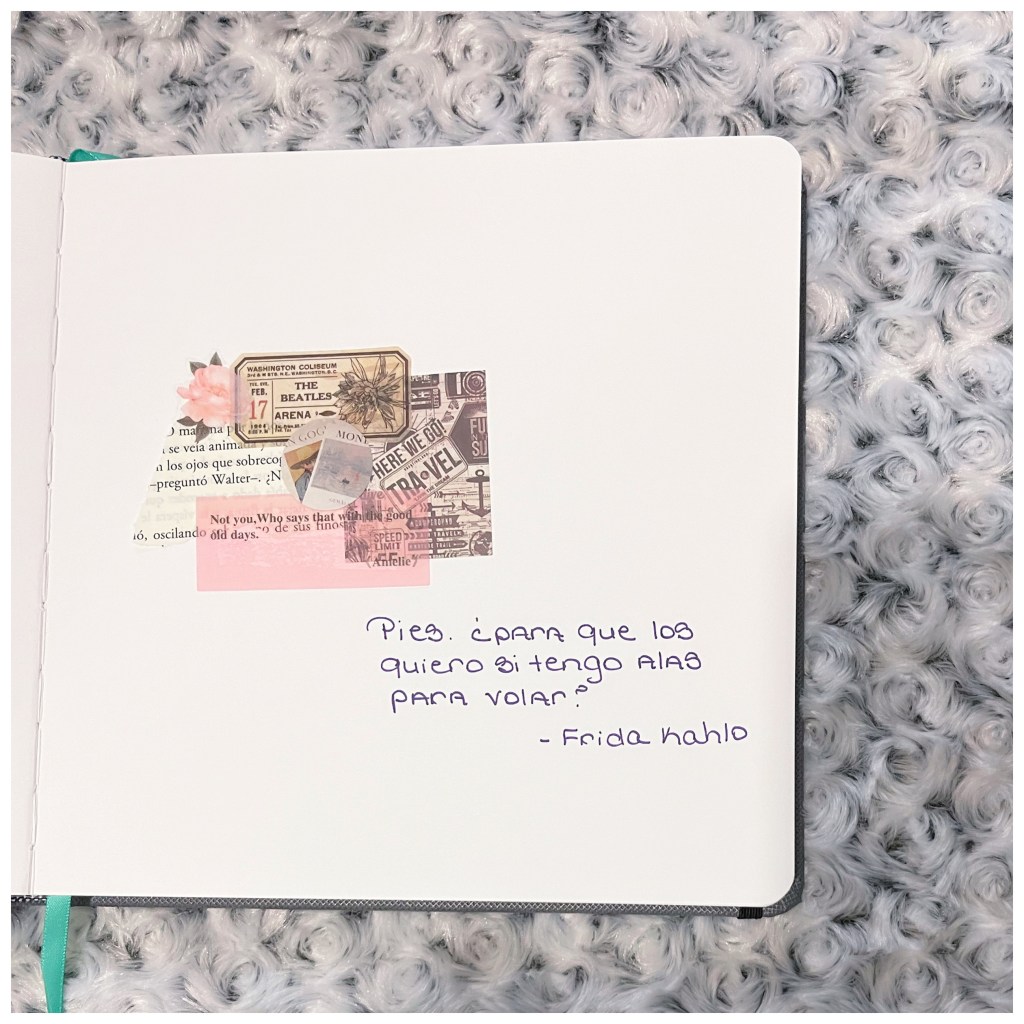 WASHINGTON COLISEUM
3rd & M STS. N.E., WASHINGTON, D.C.
TUE. EVE.
FEB.
17
1964
THE
BEATLES
ARENA
O ma na p
se veía animada y
n los ojos que sobrecog
–preguntó Walter–. ¿N
ó, oscilando so no de sus finos
GOO MON
HERE WE GO!
TRAVEL
SPEED
LIMIT
55
Not you,Who says that with the good
old days.
(Amelie)
Pies. ¿para que los
quiero si tengo alas
para volar?
- Frida Kahlo